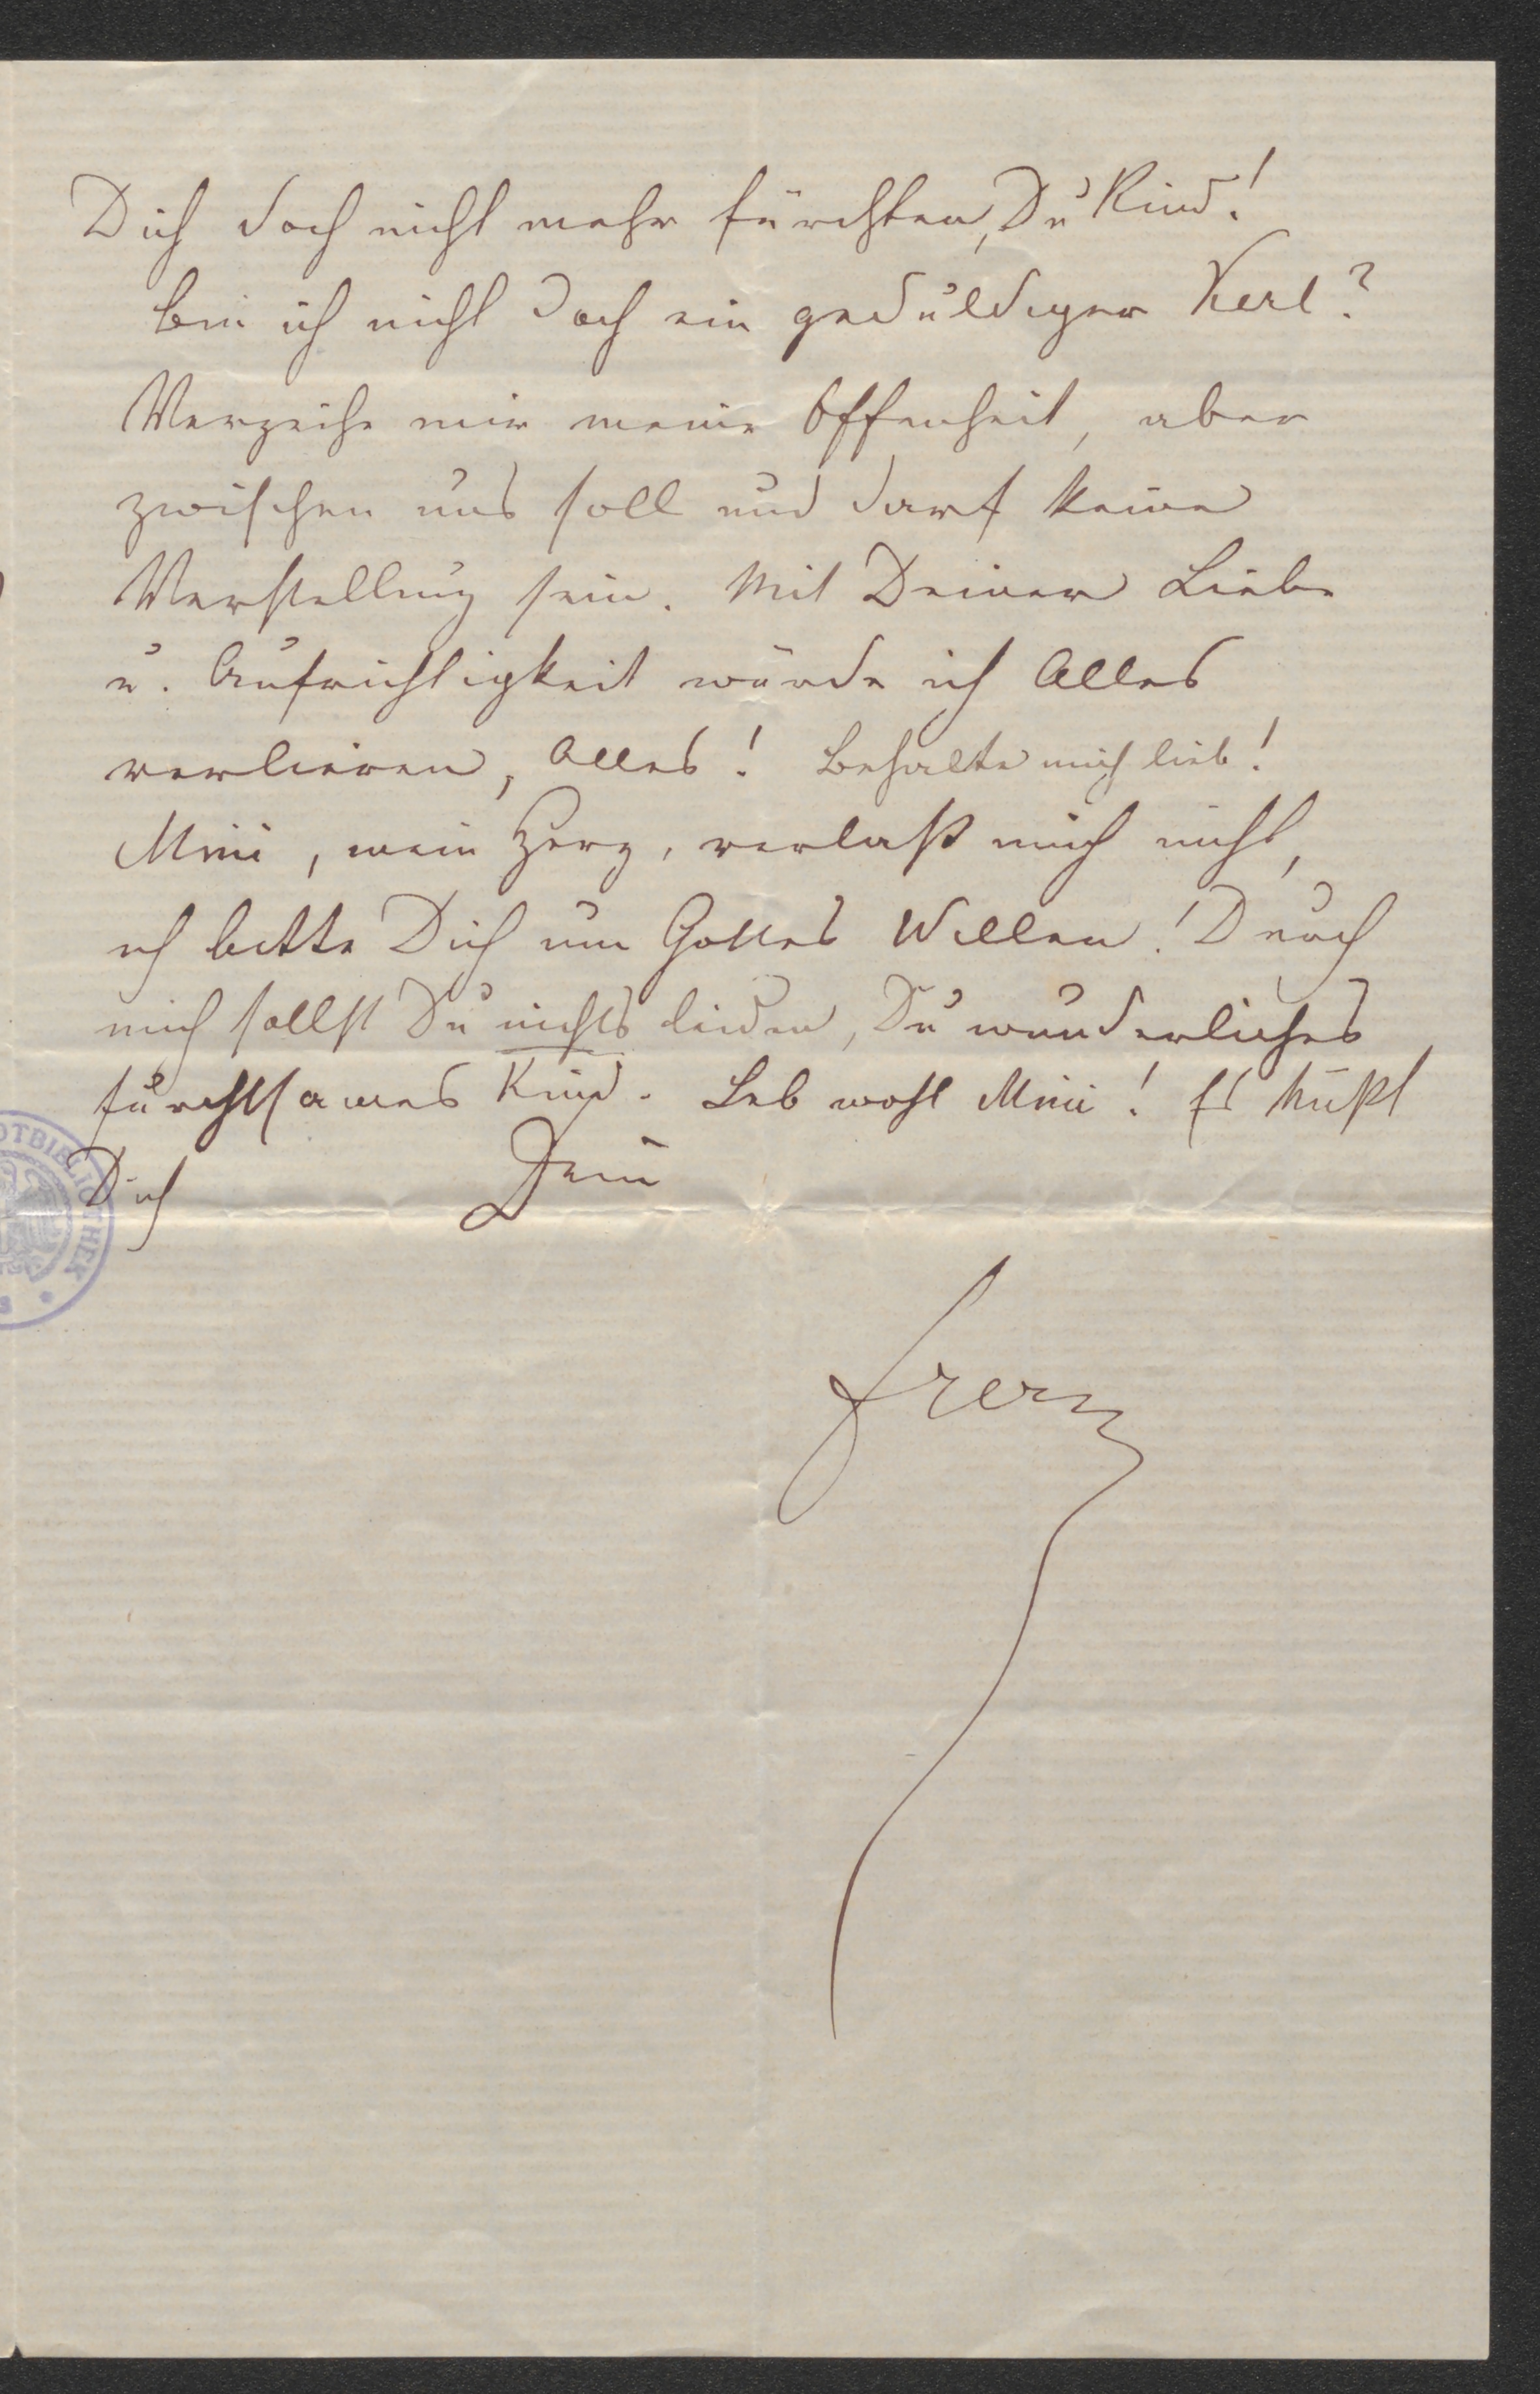 Dich doch nicht mehr fürchten, Du Kind!
bin ich nicht doch ein geduldiger Kerl?
Verzeihe mir meine Offenheit, aber
zwischen uns soll und darf keine
Verstellung sein. Mit Deiner Liebe
u. Aufrichtigkeit würde ich Alles
verlieren, Alles! Behalte mich lieb!
Mini, mein Herz, verlaß mich nicht,
ich bitte Dich um Gottes Willen! Durch
mich sollst Du nichts leiden, Du wunderliches
furchtsames Kind. Leb wohl Mini! Es küßt
Dich Dein